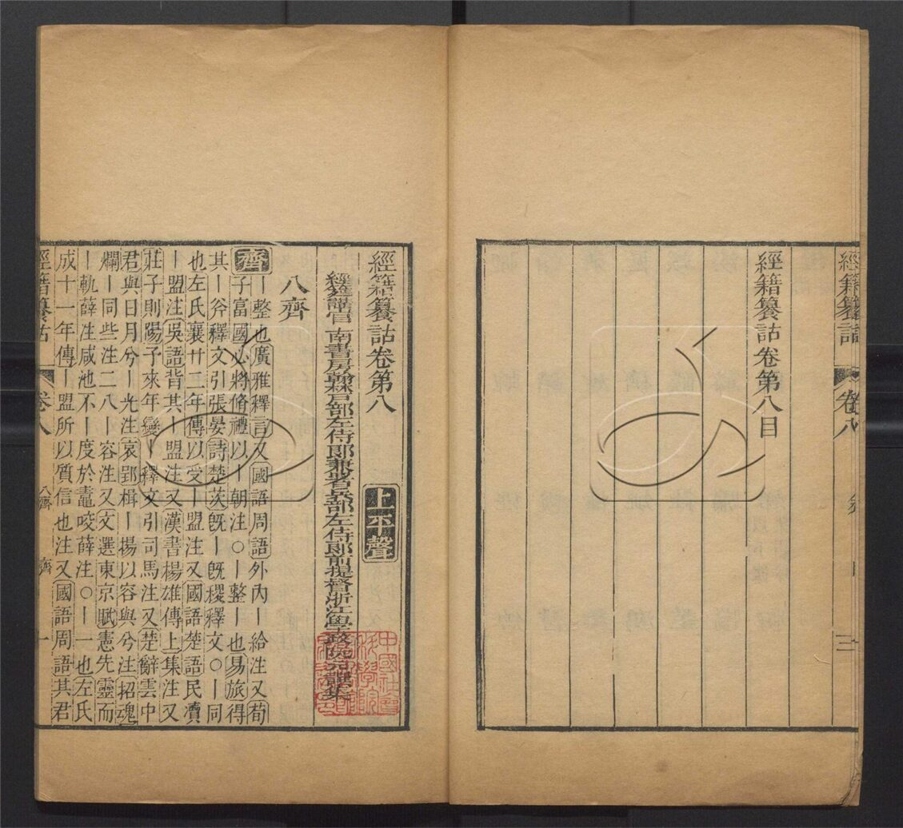 經籍籑詁
卷八
三
經籍籑詁卷第八目
經籍籑詁卷第八
上平聲
經筵講官南書房翰林戶部左侍郎兼署兵部左侍郎前提督浙江學政阮元譔集
八齊
齊
丨整也廣雅釋言又國語周語外內丨給注又荀
子富國必將脩禮以丨朝注○丨整丨也易旅得
其丨斧釋文引張晏詩楚茨旣丨旣稷釋文○丨同
也左氏襄廿二年傳以受丨盟注又國語楚語民瀆
丨盟注吳語背其丨盟注又漢書楊雄傳上集注又
莊子則陽子來年變丨釋文引司馬注又楚辭雲中
君與日月兮丨光注哀郢楫丨揚以容與兮注招魂
爛丨同些注二八丨容注又文選東京賦憲先靈而
丨軌薛注咸池不丨度於鼃咬薛注○丨一也左氏
成十一年傳丨盟所以質信也注又國語周語其君
經籍籑詁
卷八
八齊
齊
一